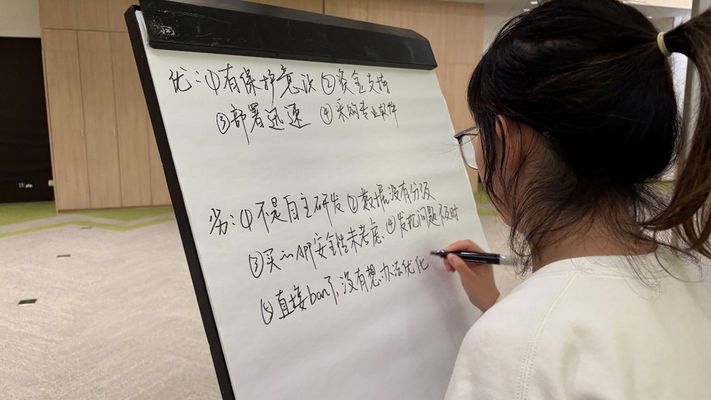 优：①有保护意识 ②资金支持
③部署迅速 ④采购专业软件
劣：①不是自主研发 ②数据没有分级
③买的API安全性未考虑、④发现问题不及时
⑤直接ban了，没有想办法优化